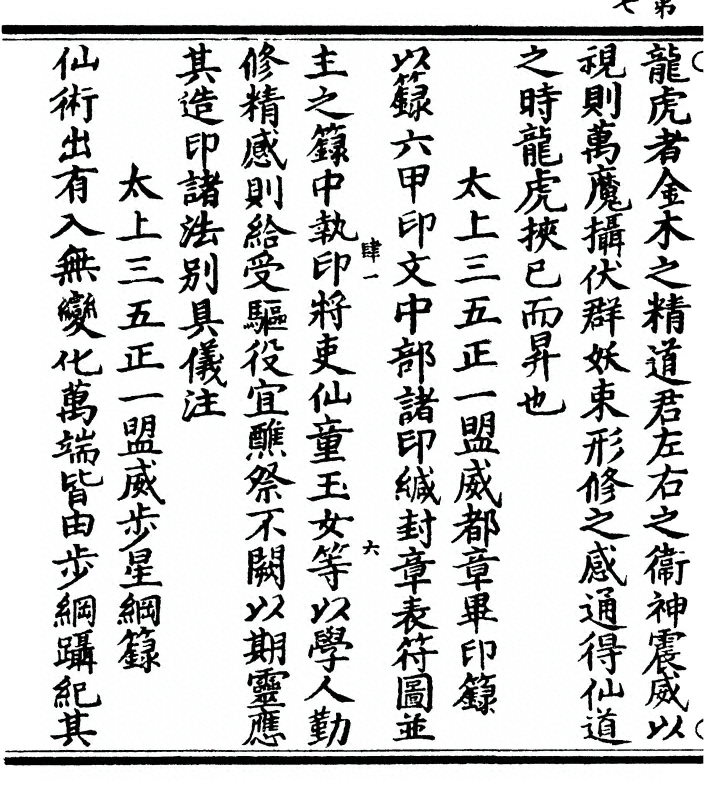 第七
龍虎者金木之精道君左右之衞神震威以
視則萬魔攝伏群妖束形修之感通得仙道
之時龍虎挾已而昇也
太上三五正一盟威都章畢印籙
以籙六甲印文中部諸印緘封章表符圖並
肆一
六
主之籙中執印將吏仙童玉女等以學人勤
修精感則給受驅役宜醮祭不闕以期靈應
其造印諸法别具儀注
太上三五正一盟威步星綱籙
仙術出有入無變化萬端皆由步綱躡紀其